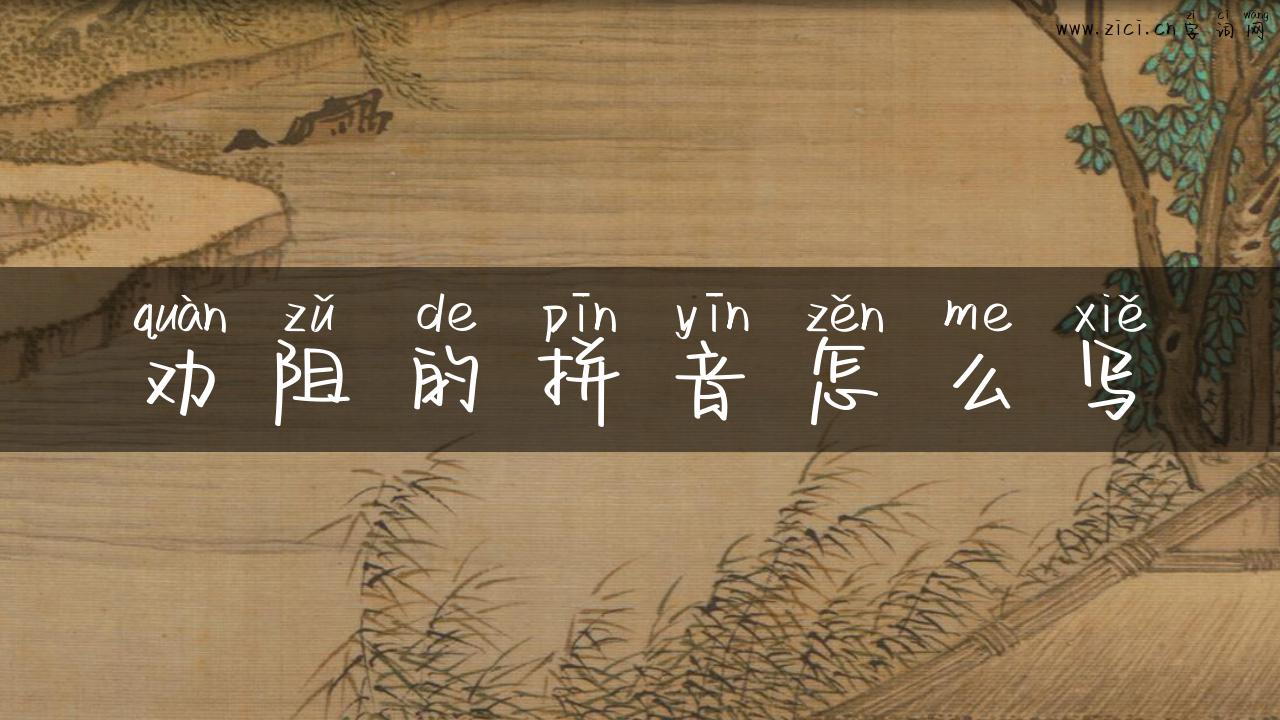 zì cí wǎng
www.zici.cn字词网
quàn zǔ de pīn yīn zěn me xiě
劝阻的拼音怎么写